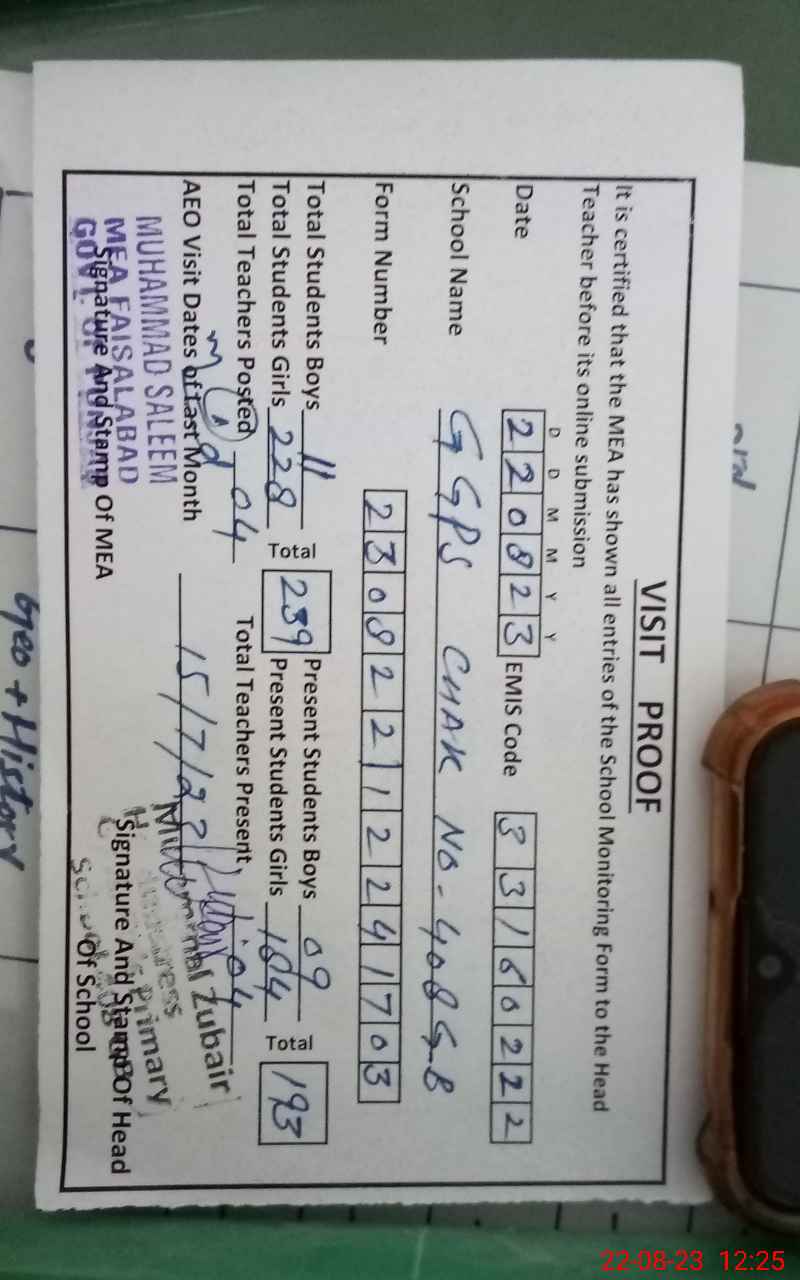 VISIT PROOF
It is certified that the MEA has shown all entries of the School Monitoring Form to the Head
Teacher before its online submission
D D M M Y Y
Date 2 2 0 8 2 3 EMIS Code 3 3 1 6 0 2 2 2
School Name GGPS CHAK NO-408GB
Form Number 2 3 0 8 2 2 1 2 2 4 1 7 0 3
Total Students Boys 11 Total 239 Present Students Boys 09 Total 193
Total Students Girls 228 Present Students Girls 184
Total Teachers Posted 04 Total Teachers Present 04
AEO Visit Dates of Last Month 15/7/23
MUHAMMAD SALEEM
MEA FAISALABAD
GOVT. OF
Signature And Stamp Of MEA
Zubair
Primary
Signature And Stamp Of Head
Of School
oral
Geo + History
22-08-23 12:25